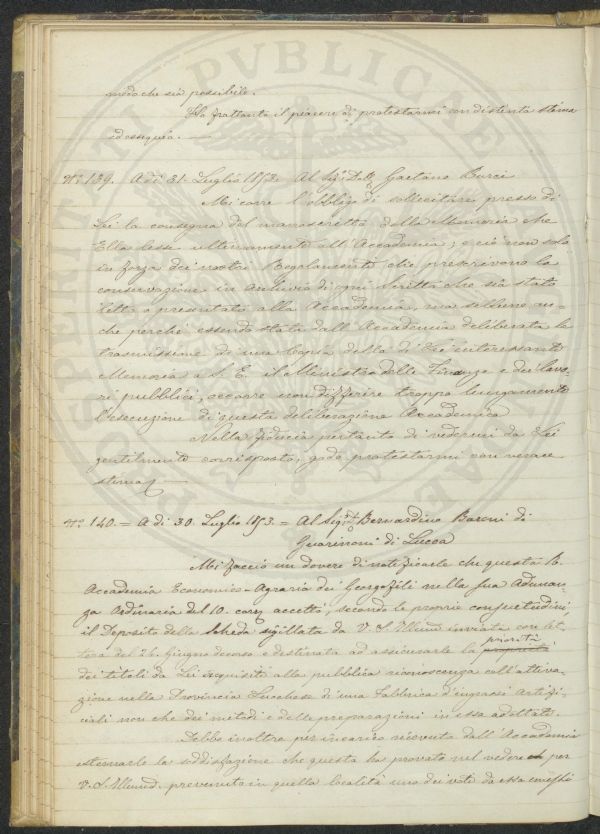 modo che sia possibile.
Ho frattanto il piacere di protestarmi con distinta stima
ed ossequio. —
N.° 139. A dì 31. Luglio 1853. Al Sig.r Dott. Gaetano Burci
Mi corre l'obbligo di sollecitare presso di
Lei la consegna del manoscritto della Memoria che
Ella lesse ultimamente all'Accademia; e ciò non solo
in forza dei nostri Regolamenti che prescrivono la
conservazione in Archivio di ogni scritto che sia stato
letto o presentato alla Accademia, ma sebbene an=
che perchè, essendo stata dall'Accademia deliberata la
trasmissione di una Copia della di Lei interessante
Memoria a S. E. il Ministro delle Finanze e dei Lavo=
ri pubblici, occorre non differire troppo lungamente
l'esecuzione di questa deliberazione Accademica
Nella fiducia pertanto di vedermi da Lei
gentilmente corrisposto, godo protestarmi con verace
stima —
N.° 140. = A dì 30. Luglio 1853. = Al Sig.r Bernardino Baroni di
Guarinoni di Lucca
Mi faccio un dovere di notificarle che questa R.
Accademia Economico-Agraria dei Georgofili nella sua Adunan=
za Ordinaria del 10. corr. accettò, secondo le proprie consuetudini
il Deposito della Scheda sigillata da V. S. Illma inviata con let=
tera del 26. Giugno decorso e destinata ad assicurarle la priorità
dei titoli da Lei acquisiti alla pubblica riconoscenza coll'attiva=
zione nella Provincia Lucchese di una Fabbrica d'ingrassi Artifi=
ciali non che dei metodi e delle preparazioni in essa adottate.
Debbo inoltre per incarico ricevuto dall'Accademia
esternarle la soddisfazione che questa ha provato nel vedere per
V. S. Illma prevenuto in quella località uno dei voti da essa
PROSPERITATI PUBLICAE